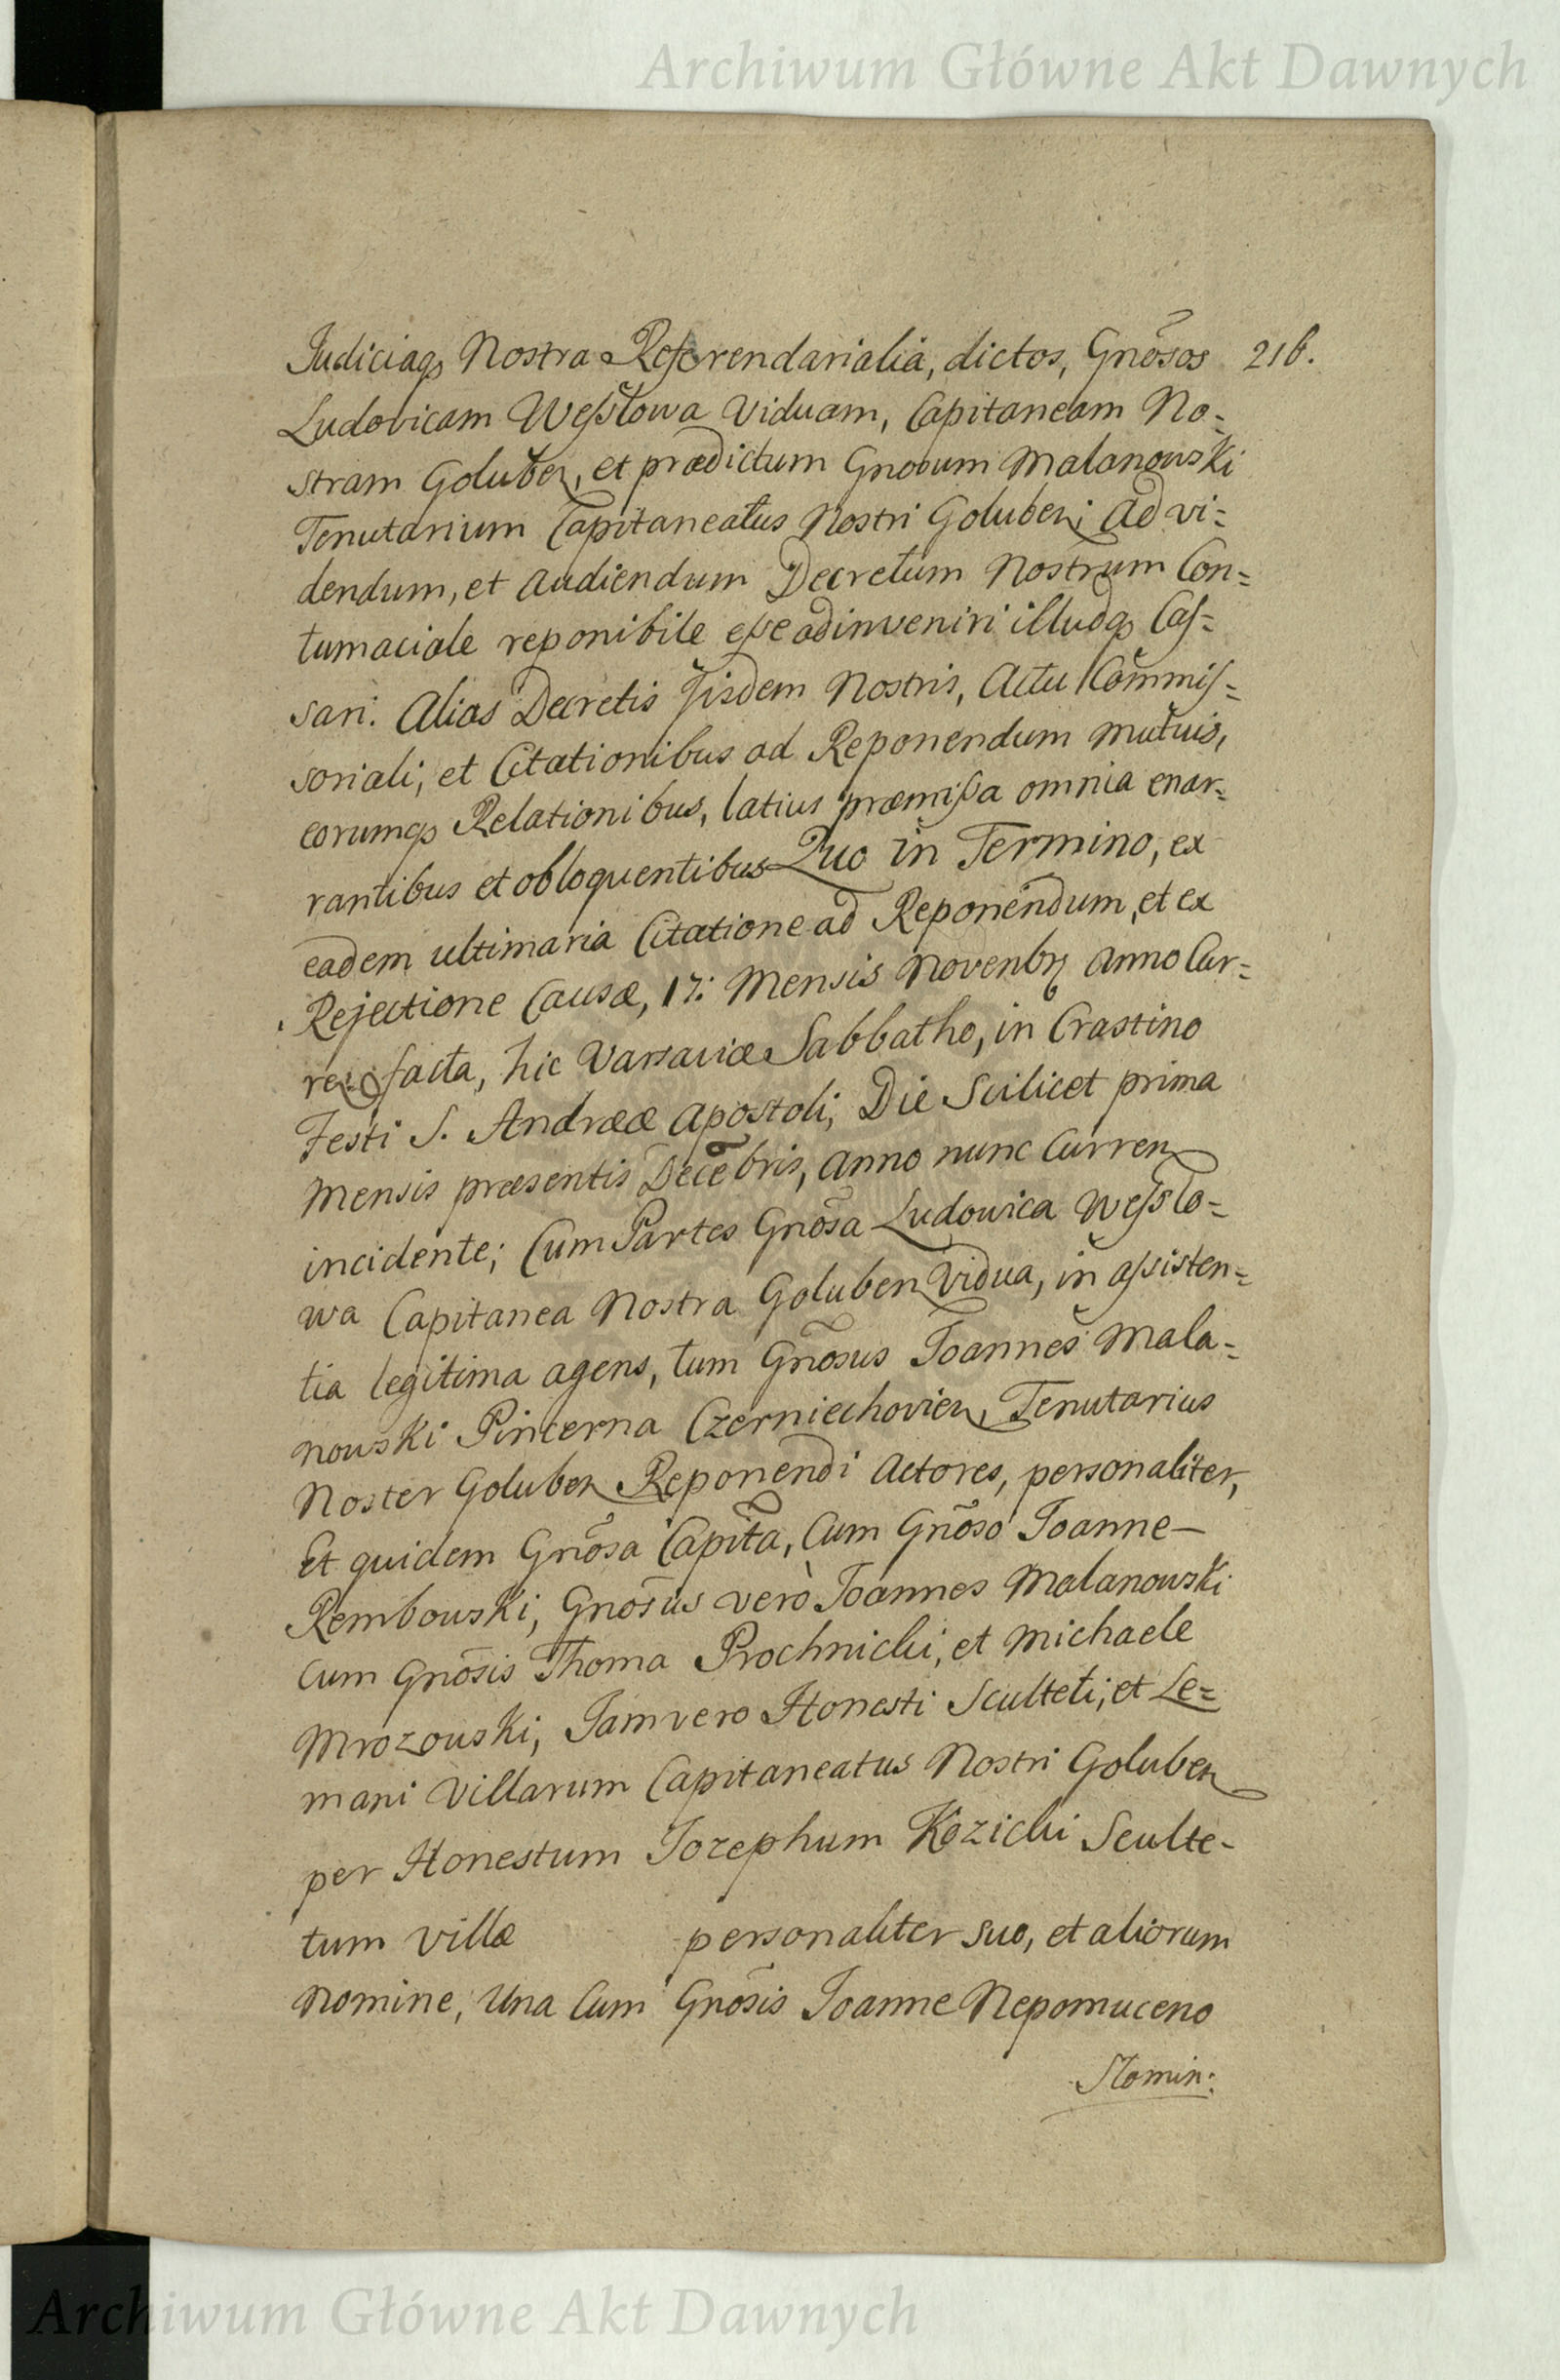 Archiwum Główne Akt Dawnych
Judiciaqꝫ Nostra Referendarialia, dictos, Gnõsos 216.
Ludovicam Wessłowa Viduam, Capitaneam No=
stram Goluben, et prædictum Gnosum Malanowski
Tenutarium Capitaneatus Nostri Goluben; Ad vi=
dendum, et Audiendum Decretum Nostrum Con=
tumaciale reponibile esse adinveniri illudqꝫ Cas=
sari. Alias Decretis Iisdem Nostris, Actu Commis=
soriali, et Citationibus ad Reponendum mutuis,
eorumqꝫ Relationibus, latius præmissa omnia enar=
rantibus et obloquentibus Quo in Termino, ex
eadem ultimaria Citatione ad Reponendum, et ex
Rejectione Causæ, 17: Mensis Novenbr Anno Cur=
ren facta, hic Varsaviæ Sabbatho, in Crastino
Festi S. Andreæ Apostoli, Die Scilicet prima
Mensis præsentis Decẽbris, Anno nunc Curren
incidente; Cum Partes Gnõsa Ludovica Wessło=
wa Capitanea Nostra Goluben Vidua, in assisten=
tia legitima agens, tum Gnõsus Joannes Mala=
nowski Pincerna Czerniechovien, Tenutarius
Noster Goluben Reponendi Actores, personaliter,
Et quidem Gnõsa Capit̃a, Cum Gnõso Joanne—
Rembowski, Gnõsus verò Joannes Malanowski
Cum Gnõsis Thoma Prochnicki, et Michaele
Mrozowski, Jam vero Honesti Sculteti, et Le=
mani Villarum Capitaneatus Nostri Goluben
per Honestum Jozephum Kozicki Sculte-
tum Villæ personaliter suo, et aliorum
Nomine, Una Cum Gnõsis Joanne Nepomuceno
Słomin:
Archiwum Główne Akt Dawnych